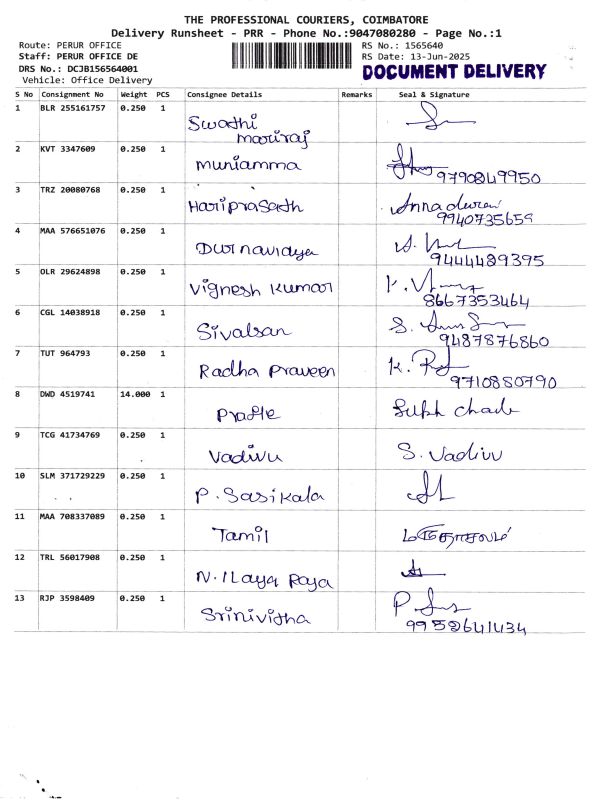 THE PROFESSIONAL COURIERS, COIMBATORE
Delivery Runsheet - PRR - Phone No.:9047080280 - Page No.:1
Route: PERUR OFFICE
RS No.: 1565640
Staff: PERUR OFFICE DE
RS Date: 13-Jun-2025
DRS No.: DCJB156564001
DOCUMENT DELIVERY
Vehicle: Office Delivery
S No Consignment No Weight PCS Consignee Details Remarks Seal & Signature
1 BLR 255161757 0.250 1
Swathi
mariraj
2 KVT 3347609 0.250 1
muniamma
9790849950
3 TRZ 20080768 0.250 1
Hariprasath Annadurai
9940735659
4 MAA 576651076 0.250 1
9444489395
5 OLR 29624898 0.250 1
Vignesh Kumar
8667353464
6 CGL 14038918 0.250 1
Sivalsan
9487876860
7 TUT 964793 0.250 1
Radha Praveen
9710880790
8 DWD 4519741 14.000 1
9 TCG 41734769 0.250 1
Vadivu S. Vadivu
10 SLM 371729229 0.250 1
P. Sasikala
11 MAA 708337089 0.250 1
Tamil
12 TRL 56017908 0.250 1
N. Ilaya Raya
13 RJP 3598409 0.250 1
Srinivitha
9952641434